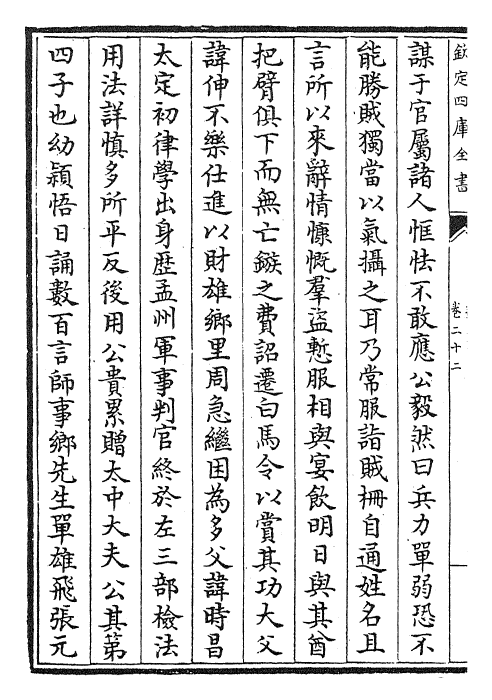 欽定四庫全書
卷二十二
謀于官屬諸人恇怯不敢應公毅然曰兵力單弱恐不
能勝賊獨當以氣攝之耳乃常服詣賊柵自通姓名且
言所以來辭情慷慨羣盜慙服相與宴飲明日與其酋
把臂俱下而無亡鏃之費詔遷白馬令以賞其功大父
諱伸不樂仕進以財雄鄉里周急繼困為多父諱時昌
太定初律學出身歴孟州軍事判官終於左三部檢法
用法詳慎多所平反後用公貴累贈太中大夫公其第
四子也幼穎悟日誦數百言師事鄉先生單雄飛張元